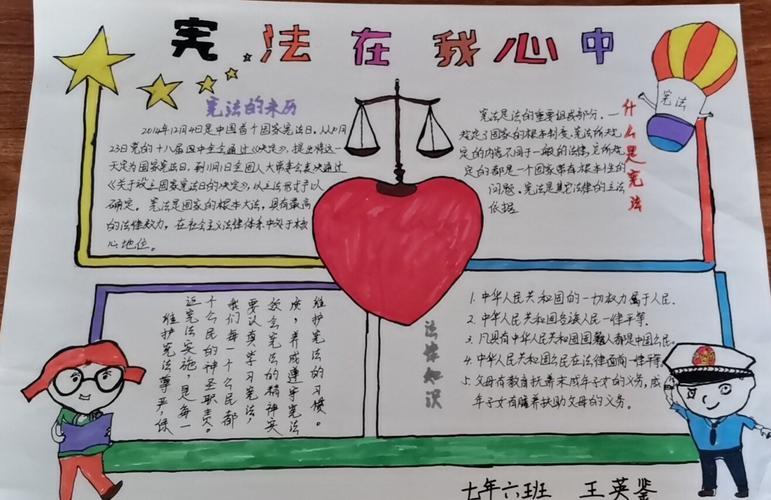 宪法在我心中
宪法的来历
2014年12月4日是中国首个国家宪法日。从10月
23日党的十八届四中全会通过《决定》,提出将这一
天定为国家宪法日,到11月1日全国人大常委会表决通过
《关于设立国家宪法日的决定》,以立法形式予以
确定。宪法是国家的根本大法,具有最高
的法律权力,在社会主义法律体系中处于核
心地位。
什么是宪法
宪法是法的重要组成部分,一
规定了国家的根本制度,宪法所规
定的内容不同于一般的法律,它所规
定的都是一个国家带有根本性的
问题。宪法是其它法律的立法
依据
宪法
维护宪法尊严,保
证宪法实施,是每一
个公民的神圣职责。
我们每一个公民都
要认真学习宪法,
核心宪法的精神实
质,养成遵守宪法
维护宪法的习惯。
法律知识
1.中华人民共和国的一切权力属于人民.
2.中华人民共和国各族人民一律平等.
3.凡具有中华人民共和国国籍人都是中国公民.
4.中华人民共和国公民在法律面前一律平等
5.父母有教育抚养未成年子女的义务,成
年子女有赡养扶助父母的义务。
七年六班 王英鉴